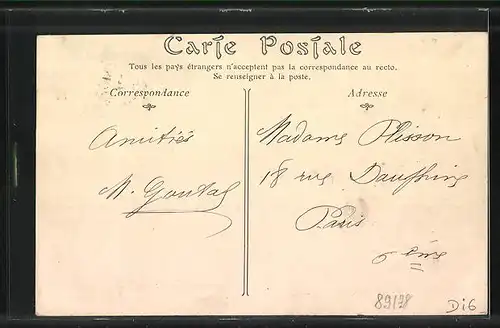 Carte Postale
Tous les pays étrangers n'acceptent pas la correspondance au recto.
Se renseigner à la poste.
Correspondance
Adresse
Amitiés
M. Goutal
Madame Plisson
18 rue Dauphine
Paris
6 ème
89/78
Di6